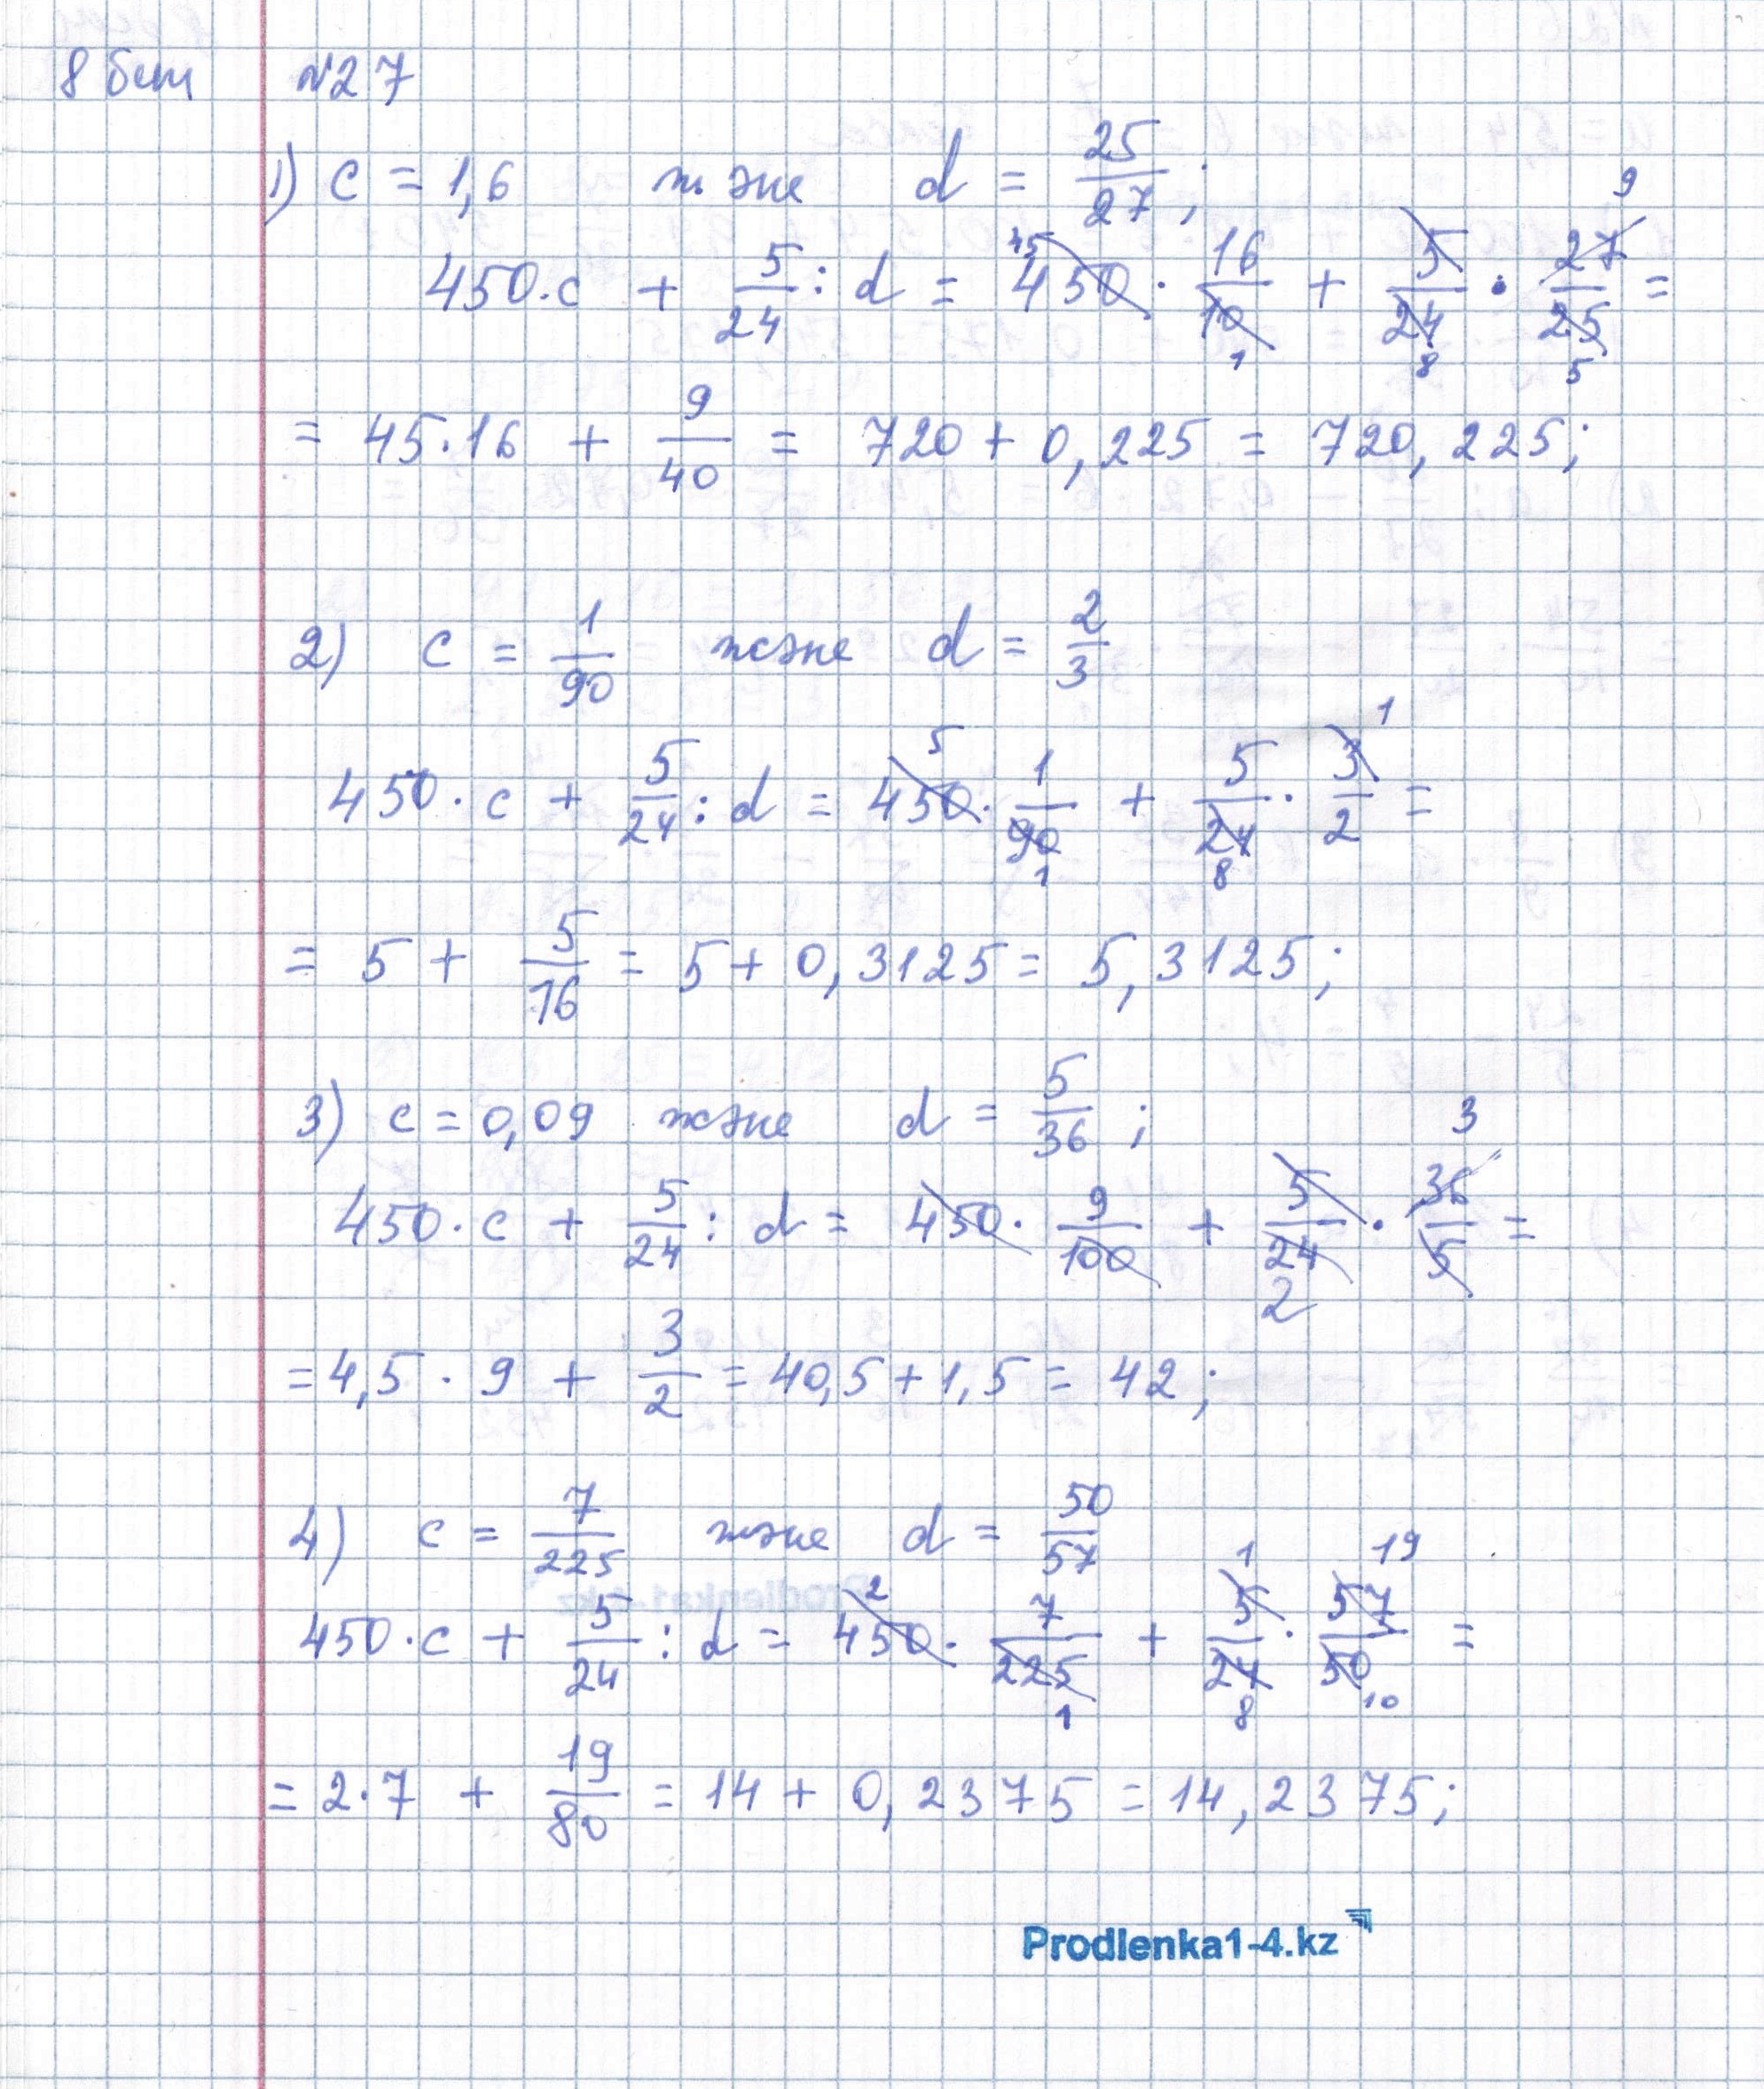 8 бет №27
1) c = 1,6 және d = 25/27;
450·c + 5/24 : d = 450 45 · 16/10 1 + 5/24 8 · 27 9/25 5 =
= 45·16 + 9/40 = 720 + 0,225 = 720,225;
2) c = 1/90 және d = 2/3
450·c + 5/24 : d = 450 5 · 1/90 1 + 5/24 8 · 3 1/2 =
= 5 + 5/16 = 5 + 0,3125 = 5,3125;
3) c = 0,09 және d = 5/36;
450·c + 5/24 : d = 450 · 9/100 + 5/24 2 · 36 3/5 =
= 4,5 · 9 + 3/2 = 40,5 + 1,5 = 42;
4) c = 7/225 және d = 50/57
450·c + 5/24 : d = 450 2 · 7/225 1 + 5 1/24 8 · 57 19/50 10 =
= 2·7 + 19/80 = 14 + 0,2375 = 14,2375;
Prodlenka1-4.kz